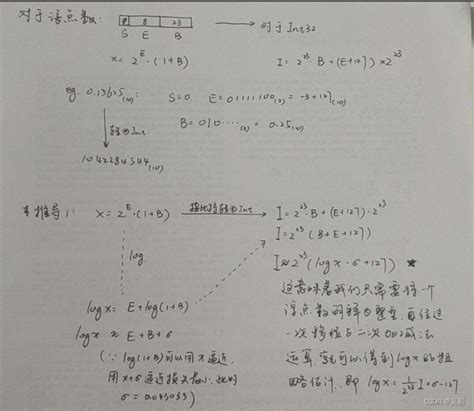 对于浮点数: 1 8 23 → 对于Int32
S E B
x = 2^E·(1+B) I = 2^23·B + (E+127)×2^23
eg. 0.15625(10): S=0. E=01111100(2) = -3+127(10)
B=010····(2) = 0.25(10)
转为Int.
1042284544(10)
推导1: x = 2^E·(1+B) 转为Int I = 2^23·B + (E+127)·2^23
I = 2^23 (B+E+127)
log. I ≈ 2^23 (log x - σ + 127) ★
log x = E + log(1+B)
log x ≈ E + B + σ
(∵ log(1+B) 可以用 x 逼近,
用 x+σ 逼近损失最小, 此时
σ = 0.045035)
这意味着我们只需要将一个
浮点数解释为整型, 再经过
一次移位与二次加减法
运算, 就可以得到 log x 的粗
略估计, 即 log x = 1/2^23 I + σ - 127
CSDN